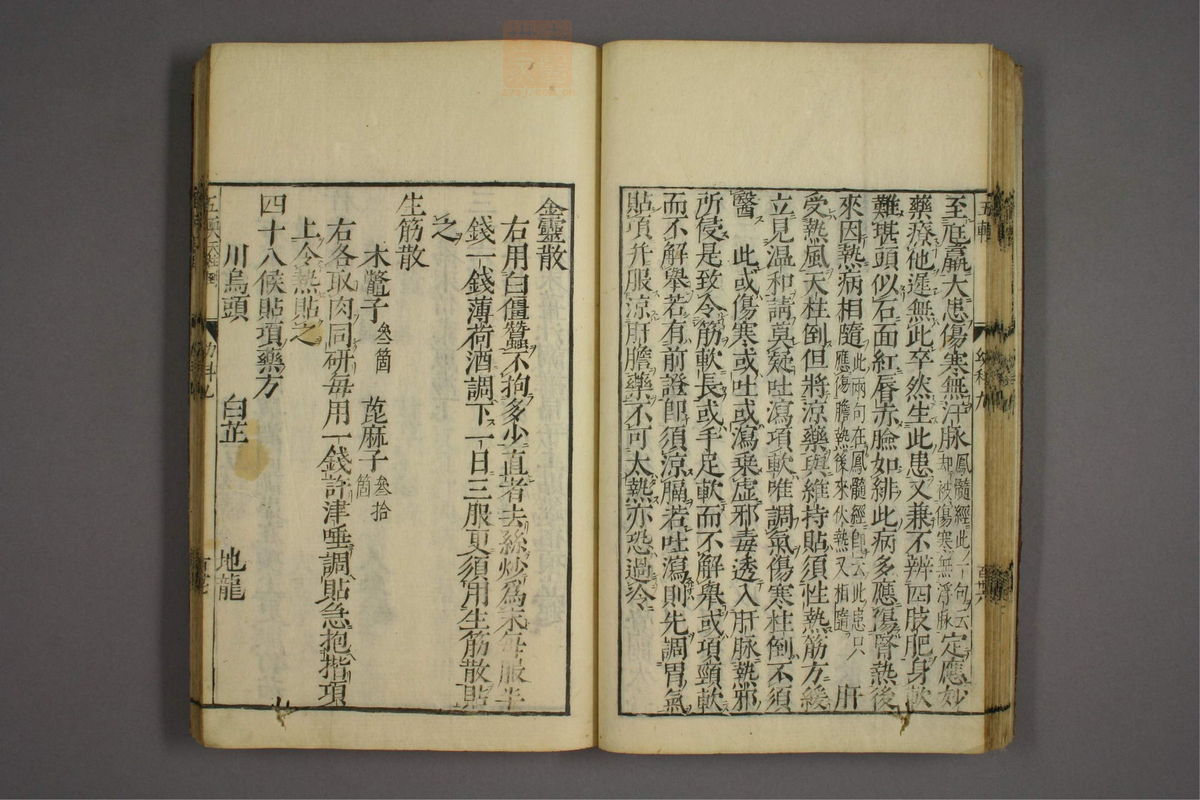 至尫羸大患傷寒無汗脉鳳髓經此一句云却被傷寒無浮脉定應妙
藥療他遲無此卒然生此患又兼不辨四肢肥身軟
難堪頭似石面紅唇赤臉如緋此病多應傷腎熱後
來因熱病相隨此兩句在鳳髓經即云此患只應傷膽熱後來伏熱又相隨肝
受熱風天柱倒但將涼藥與維持貼須性熱筋方緩
立見温和請莫疑吐瀉項軟唯調氣傷寒柱倒不須
醫 此或傷寒或吐或瀉乘虛邪毒透入肝脉熱邪
所侵是致令筋軟長或手足軟而不解舉或項頸軟
而不解舉若有前證即須涼膈若吐瀉則先調胃氣
貼項并服涼肝膽藥不可太熱亦恐過冷
金靈散
右用白僵蠶不拘多少直者去絲炒爲末每服半
錢一錢薄荷酒調下一日三服更須用生筋散貼
之
生筋散
木鱉子叁箇 蓖麻子叁拾箇
右各取肉同研每用一錢許津唾調貼急抱揩項
上令熱貼之
四十八候貼項藥方
川烏頭 白芷 地龍